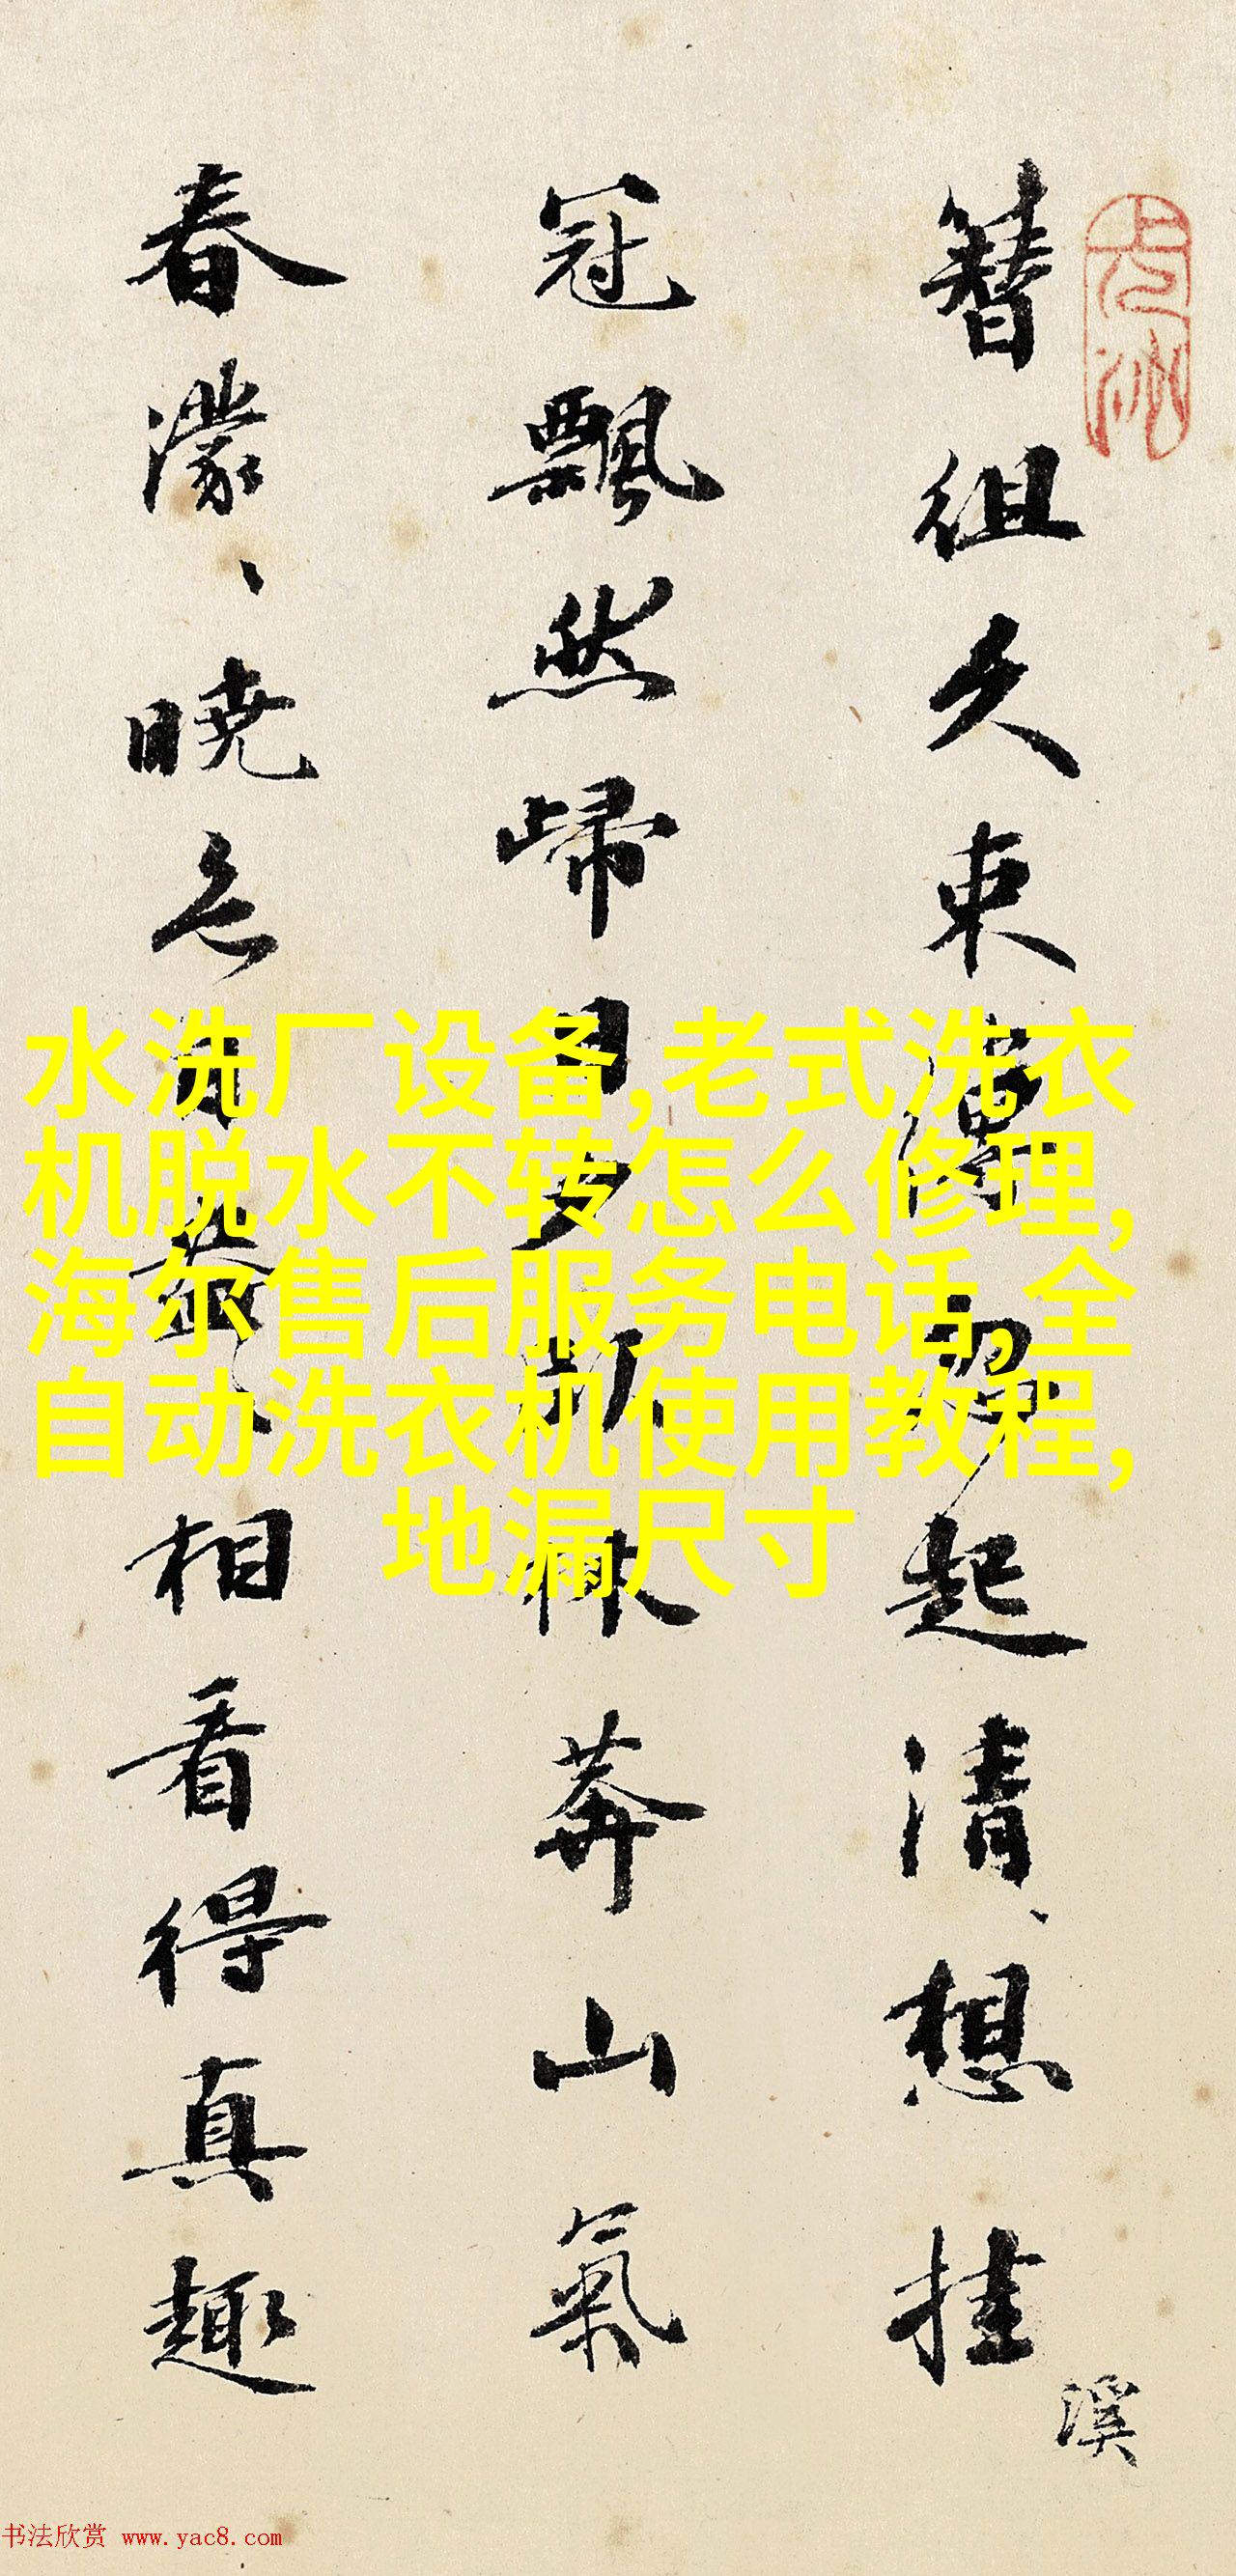 簪组久束縛 起清、想挂
冠飄然歸 林莽山氣
春濛、曉 相看得真趣
溪
水洗厂设备,老式洗衣
机脱水不转怎么修理,
海尔售后服务电话,全
自动洗衣机使用教程,
地漏尺寸
书法欣赏 www.yac8.com